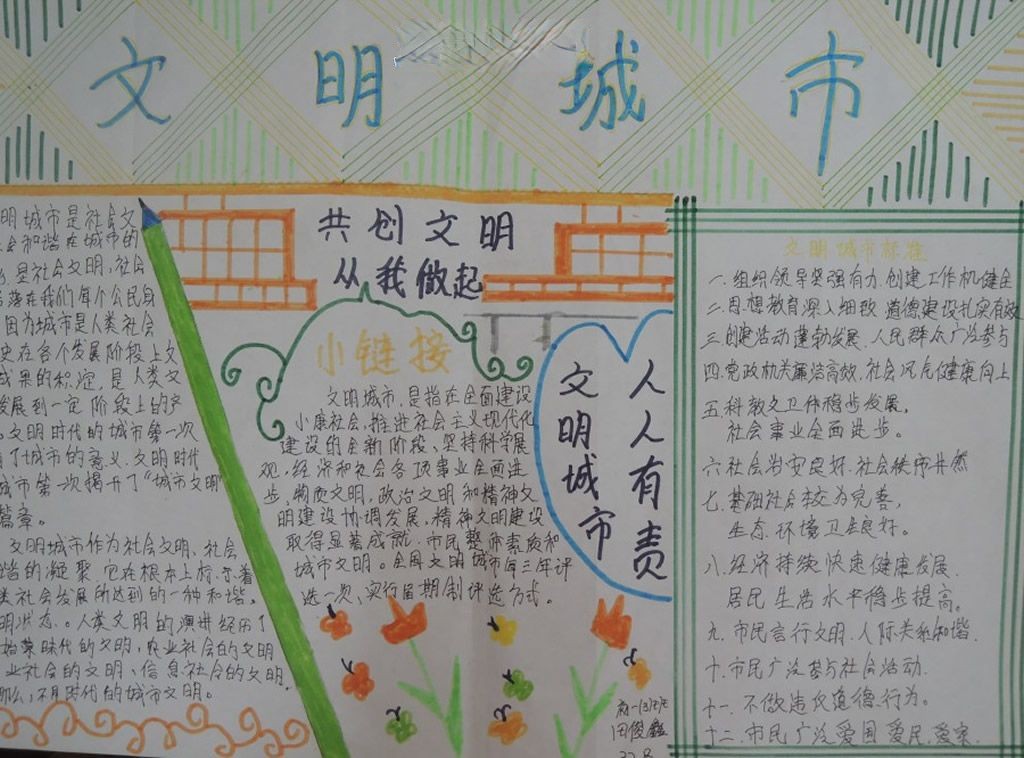 文明城市
明城市是社会文
会和谐在城市的
是社会文明,社会
落在我们每个公民身
因为城市是人类社会
史在各个发展阶段上文
成果的积淀,是人类文
发展到一定阶段上的产
。文明时代的城市第一次
了城市的意义.文明时代
城市第一次揭开了“城市文明”
篇章。
文明城市作为社会文明、社会
谐的凝聚,它在根本上标示着
类社会发展所达到的一种和谐、
明状态。人类文明的演进经历了
始蒙昧时代的文明,农业社会的文明
业社会的文明、信息社会的文明,
那么,不同时代的城市文明。
共创文明
从我做起
小链接
文明城市,是指在全面建设
小康社会,推进社会主义现代化
建设的全新阶段、坚持科学展
观,经济和社会各项事业全面进
步,物质文明,政治文明和精神文
明建设协调发展,精神文明建设
取得显著成就,市民整体素质和
城市文明。全国文明城市每三年评
选一次,实行届期制评选方式。
人人有责
文明城市
田俊鑫
文明城市标准
一.组织领导坚强有力.创建工作机健全
二.思想教育深入细致 道德建设扎实有效
三.创建活动蓬勃发展、人民群众广泛参与
四.党政机关廉洁高效,社会风气健康向上
五科教文卫体稳步发展,
社会事业全面进步。
六社会治安良好.社会秩序井然
七.基础社会较为完善,
生态.环境卫生良好。
八.经济持续快速健康发展.
居民生活水平稳步提高。
九.市民言行文明.人际关系和谐.
十.市民广泛参与社会活动.
十一.不做违反道德行为。
十二.市民广泛爱国爱民.爱家.